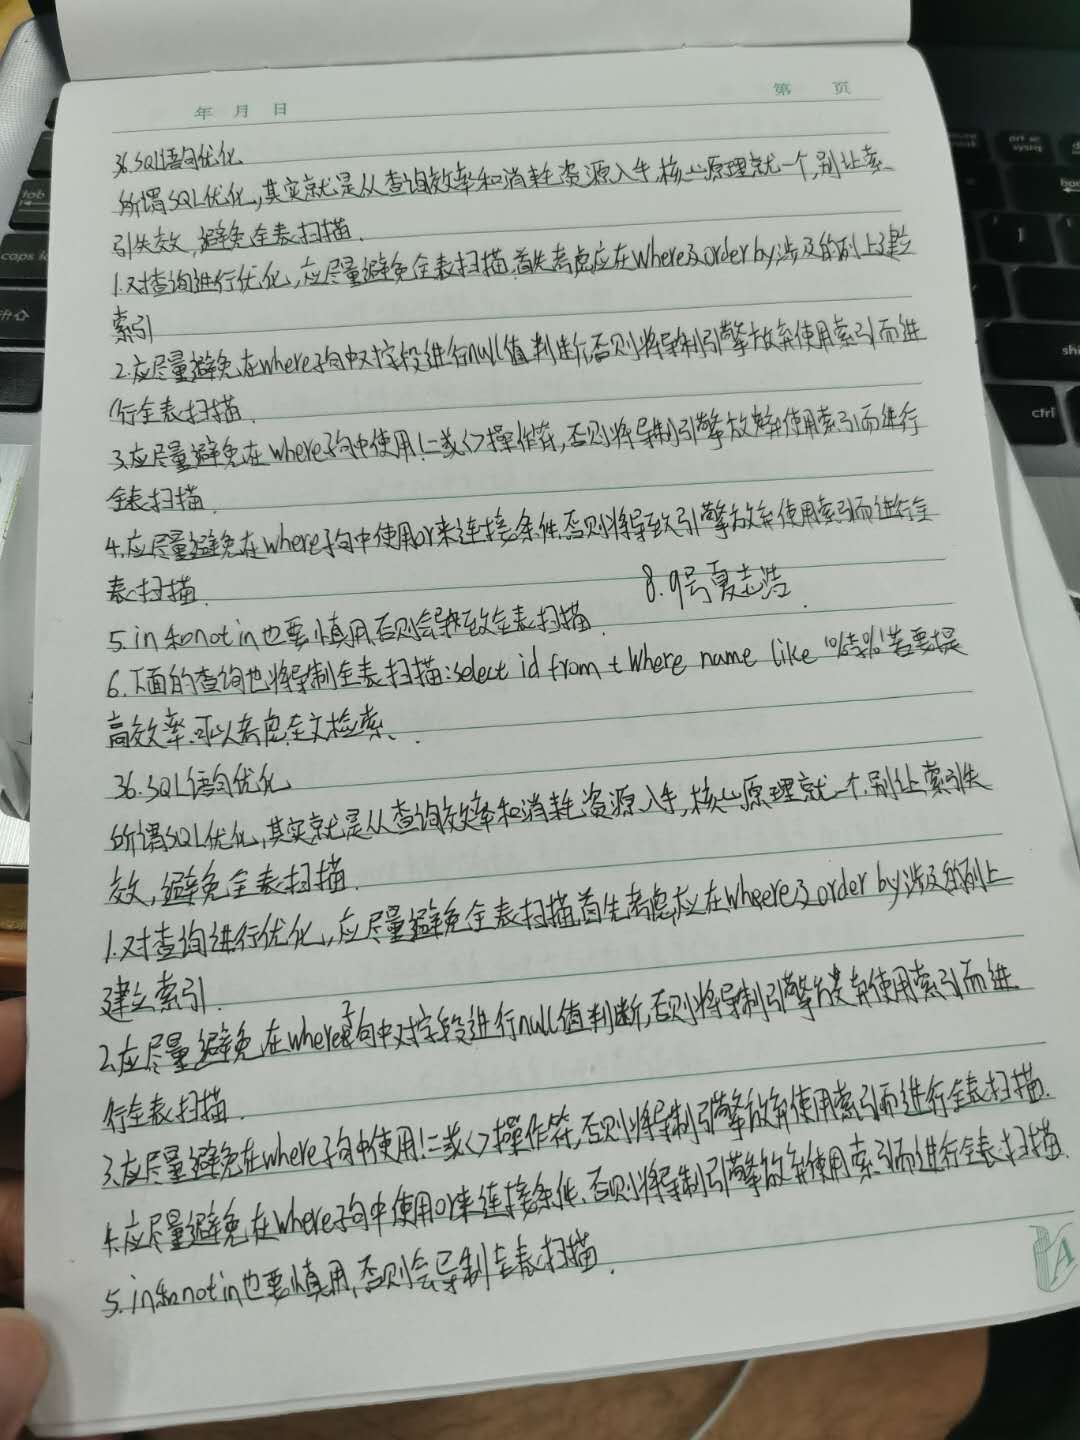 年 月 日
第 页
36.SQL语句优化
所谓SQL优化,其实就是从查询效率和消耗资源入手,核心原理就一个,别让索
引失效,避免全表扫描.
1.对查询进行优化,应尽量避免全表扫描,首先考虑应在where及order by涉及的列上建立
索引
2.应尽量避免在where子句中对字段进行null值判进行,否则将导制引擎放弃使用索引而进
行全表扫描.
3.应尽量避免在where子句中使用!=或<>操作符,否则将导制引擎放弃使用索引而进行
全表扫描.
4.应尽量避免在where子句中使用or来连接条件,否则将导致引擎放弃使用索引而进行全
表扫描.
8.9号夏志浩.
5.in和not in也要慎用,否则会导致全表扫描.
6.下面的查询也将导制全表扫描:select id from t Where name like '%李%'若要提
高效率,可以考虑全文检索、.
36.SQL语句优化
所谓SQL优化,其实就是从查询效率和消耗资源入手,核心原理就一个.别让索引失
效,避免全表扫描.
1.对查询进行优化,应尽量避免全表扫描,首先考虑应在wheere及order by涉及的列上
建立索引.
2.应尽量避免在where子句中对字段进行null值判断,否则将导制引擎放弃使用索引而进
行全表扫描.
3.应尽量避免在where子句中使用!=或<>操作符,否则将导制引擎放弃使用索引而进行全表扫描.
4.应尽量避免在where子句中使用or来连接条件,否则将导制引擎放弃使用索引而进行全表扫描
5.in和not in也要慎用,否则会导制全表扫描.